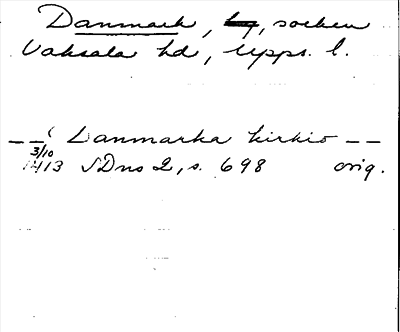 Danmark, by, socken
Vaksala hd, Upps. l.
-- Danmarka kirkio --
3/10
1413 SDns 2, s. 698 orig.